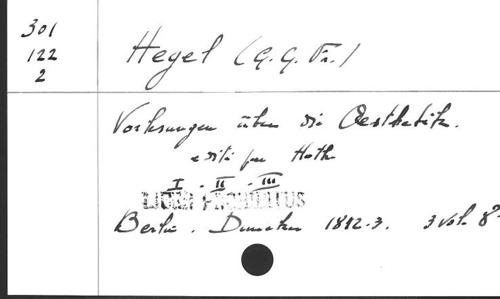 301
122
2
Hegel (G. G. Fr.)
Vorlesungen über die Aesthetik.
edité par Hotho
I - II - III
LIBER PROHIBITUS
Berlin. Duncker 1842-3. 3 Vol. 8º